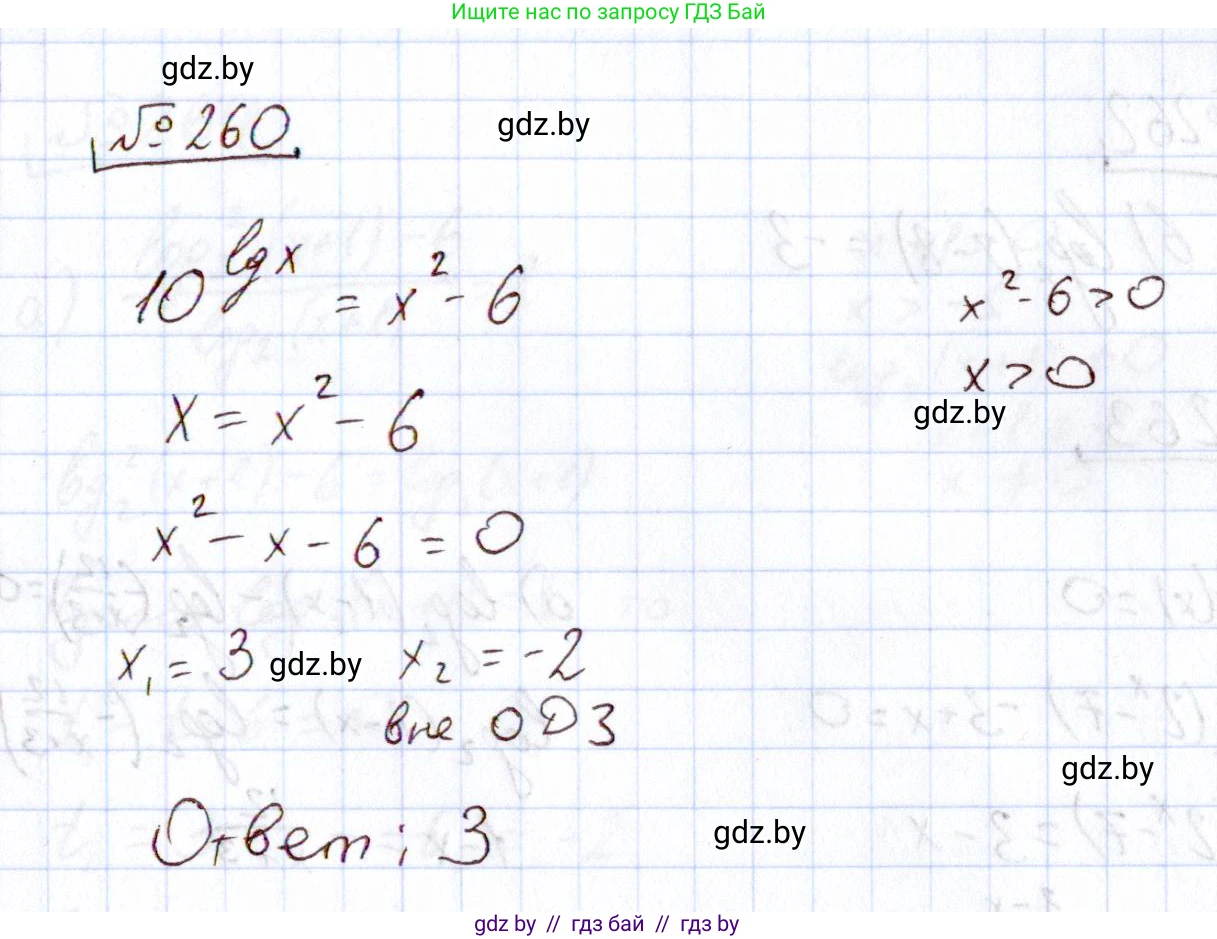 Ищите нас по запросу ГДЗ Бай
gdz.by
№ 260.
gdz.by
10^{lg x} = x² - 6
x² - 6 > 0
x > 0
gdz.by
x = x² - 6
x² - x - 6 = 0
x₁ = 3 gdz.by x₂ = -2
вне ОДЗ
gdz.by
Ответ: 3
gdz.by
gdz by // гдз бай // гдз by